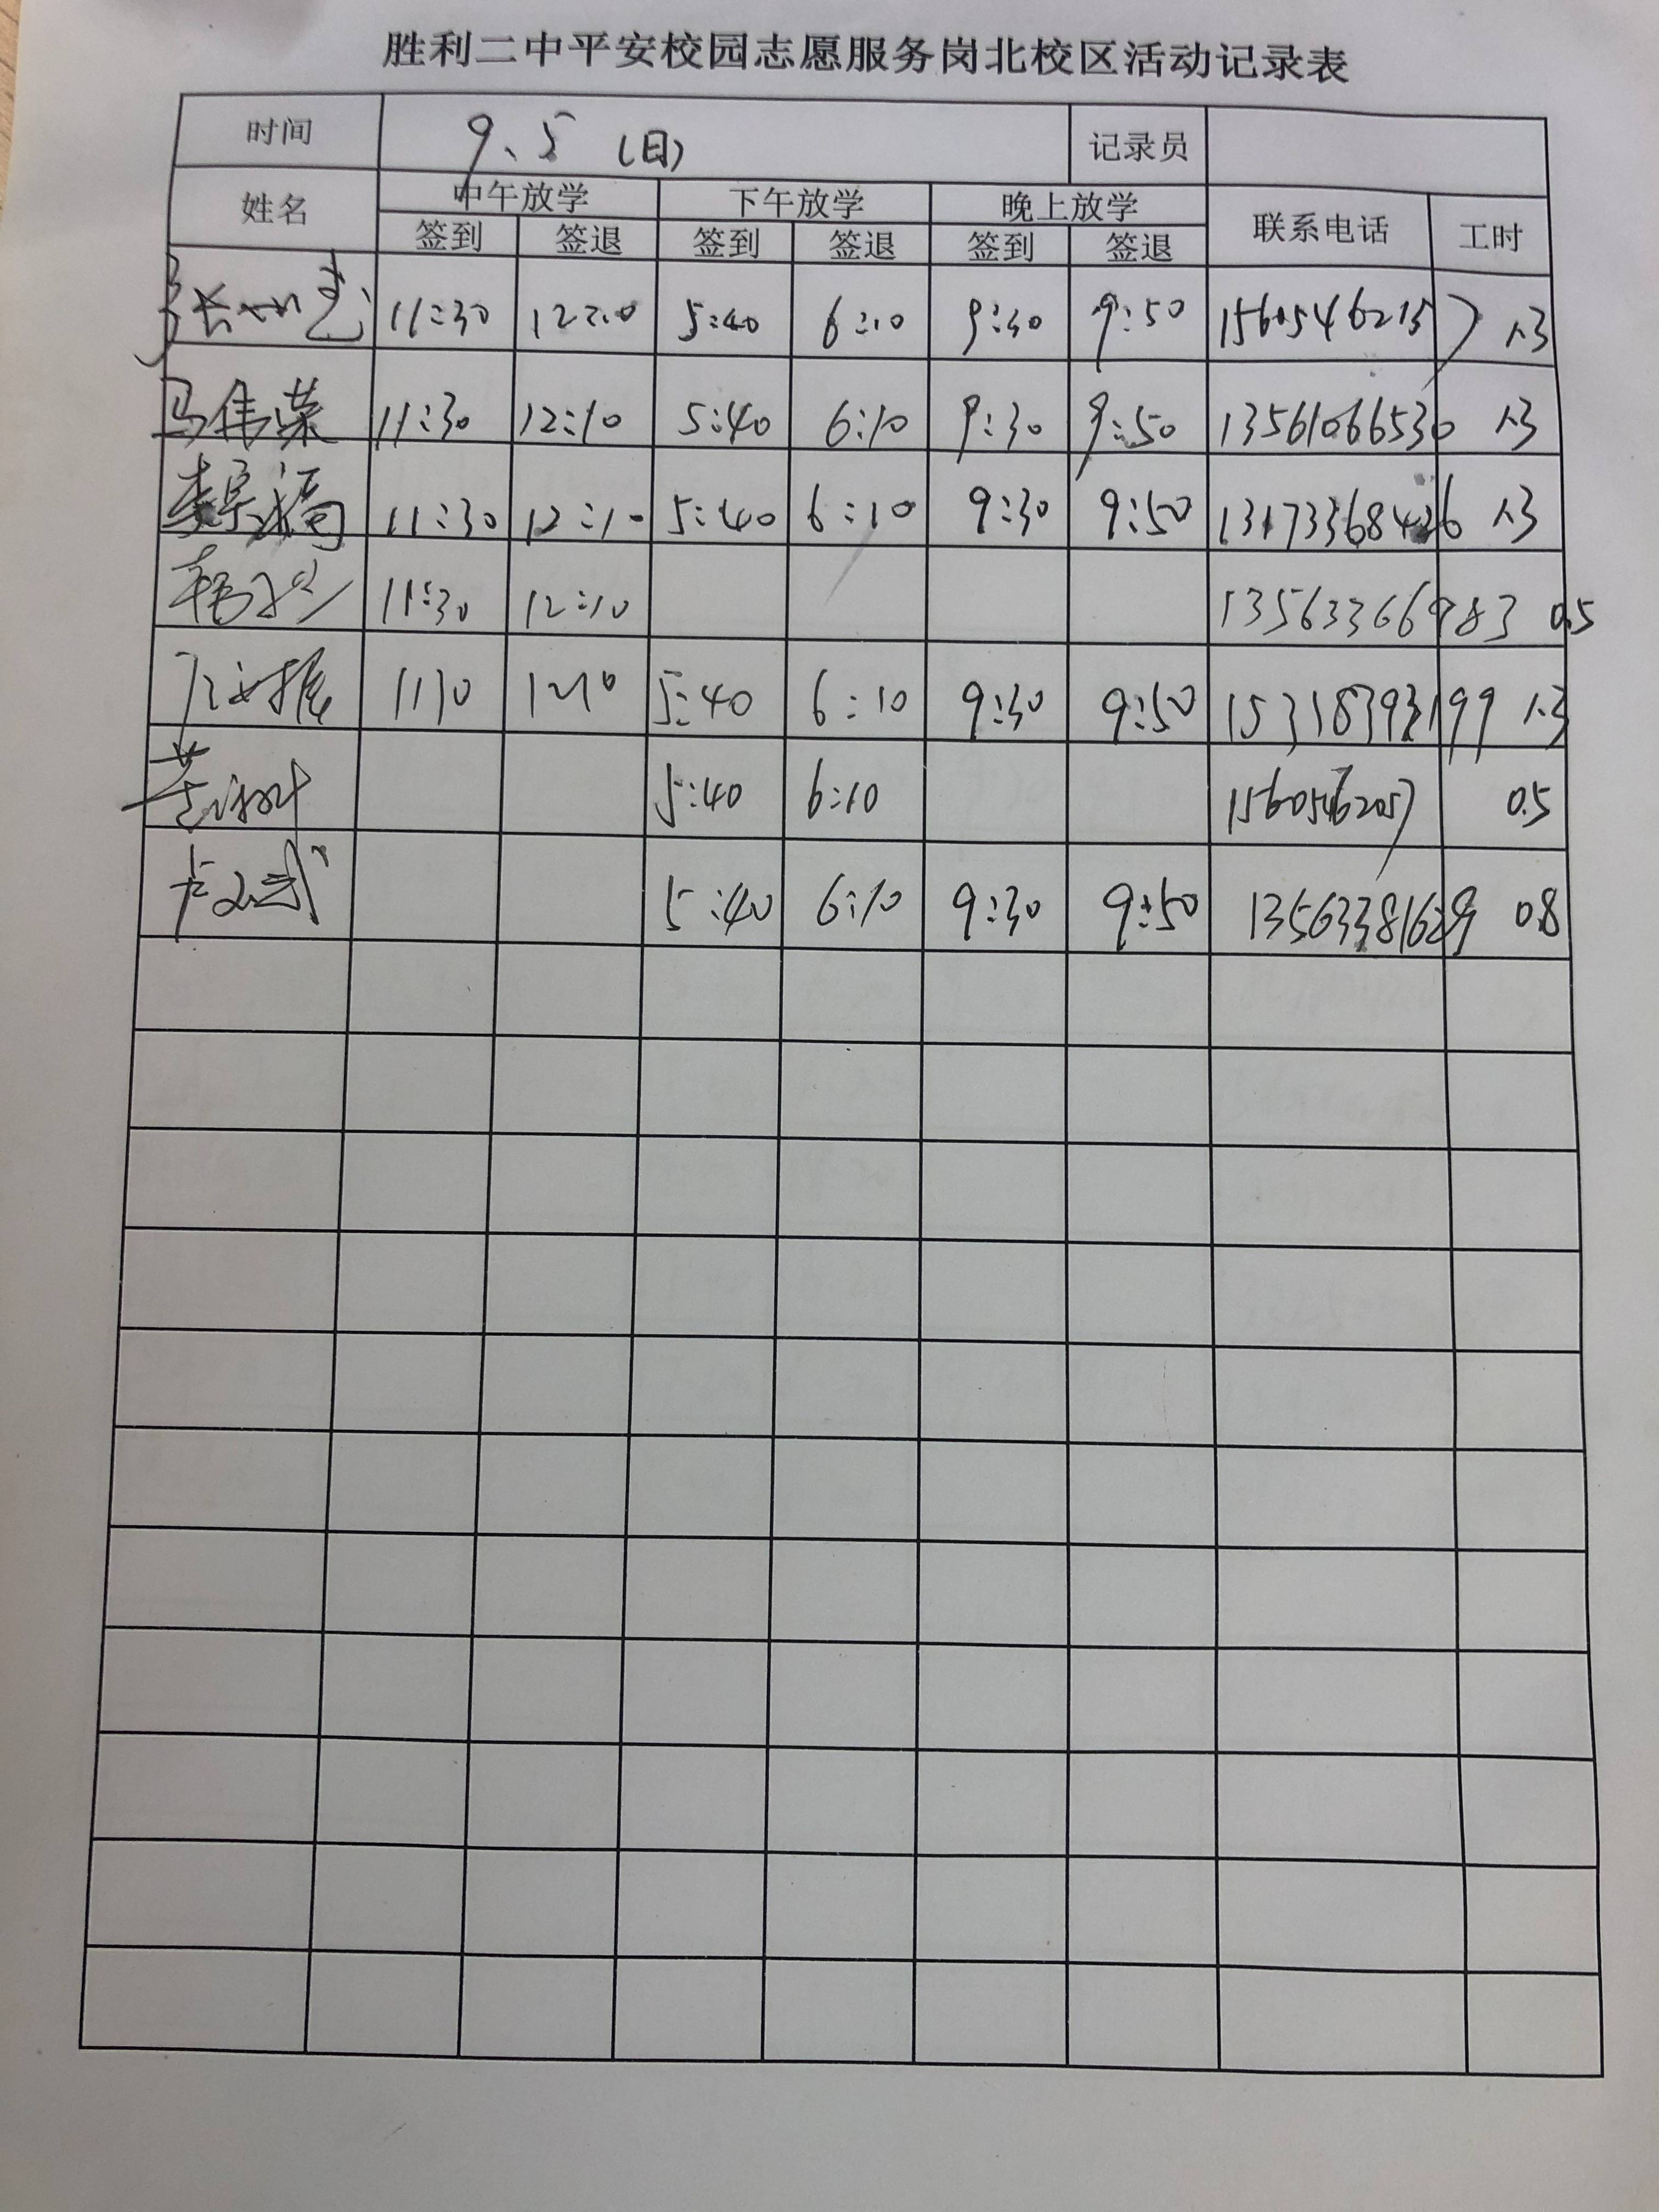 胜利二中平安校园志愿服务岗北校区活动记录表
时间 9.5 (日) 记录员
姓名 中午放学 下午放学 晚上放学 联系电话 工时
签到 签退 签到 签退 签到 签退
11:30 5:40 6:10 9:30 9:50 15605462157 1.3
马伟荣 11:30 12:10 5:40 6:10 9:30 9:50 13561066530 1.3
11:30 12:10 5:40 6:10 9:30 9:50 1.3
11:30 12:10 13563366983 0.5
5:40 6:10 9:30 9:50 15318393199 1.3
5:40 6:10 15605462057 0.5
5:40 6:10 9:30 9:50 13563381629 0.8